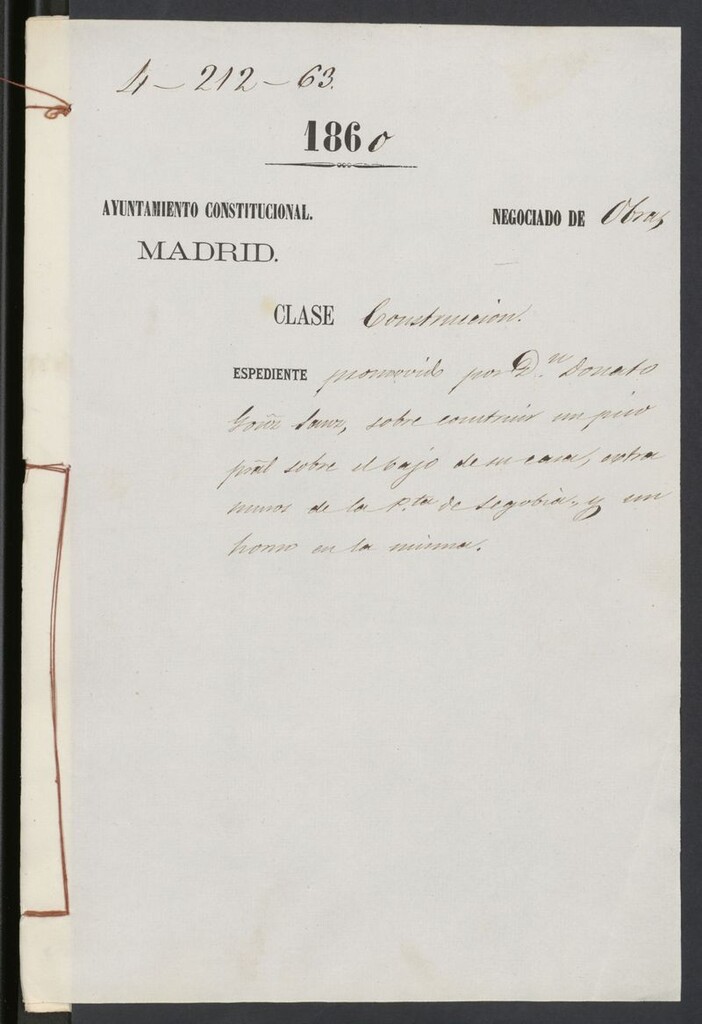 4-212-63.
1860
AYUNTAMIENTO CONSTITUCIONAL.
MADRID.
NEGOCIADO DE Obras
CLASE Construccion.
ESPEDIENTE promovido por D.n Donato
Sanz, sobre construir un piso
pral sobre el bajo de su casa, extra
muros de la P.ta de Segobia, y un
horno en la misma.